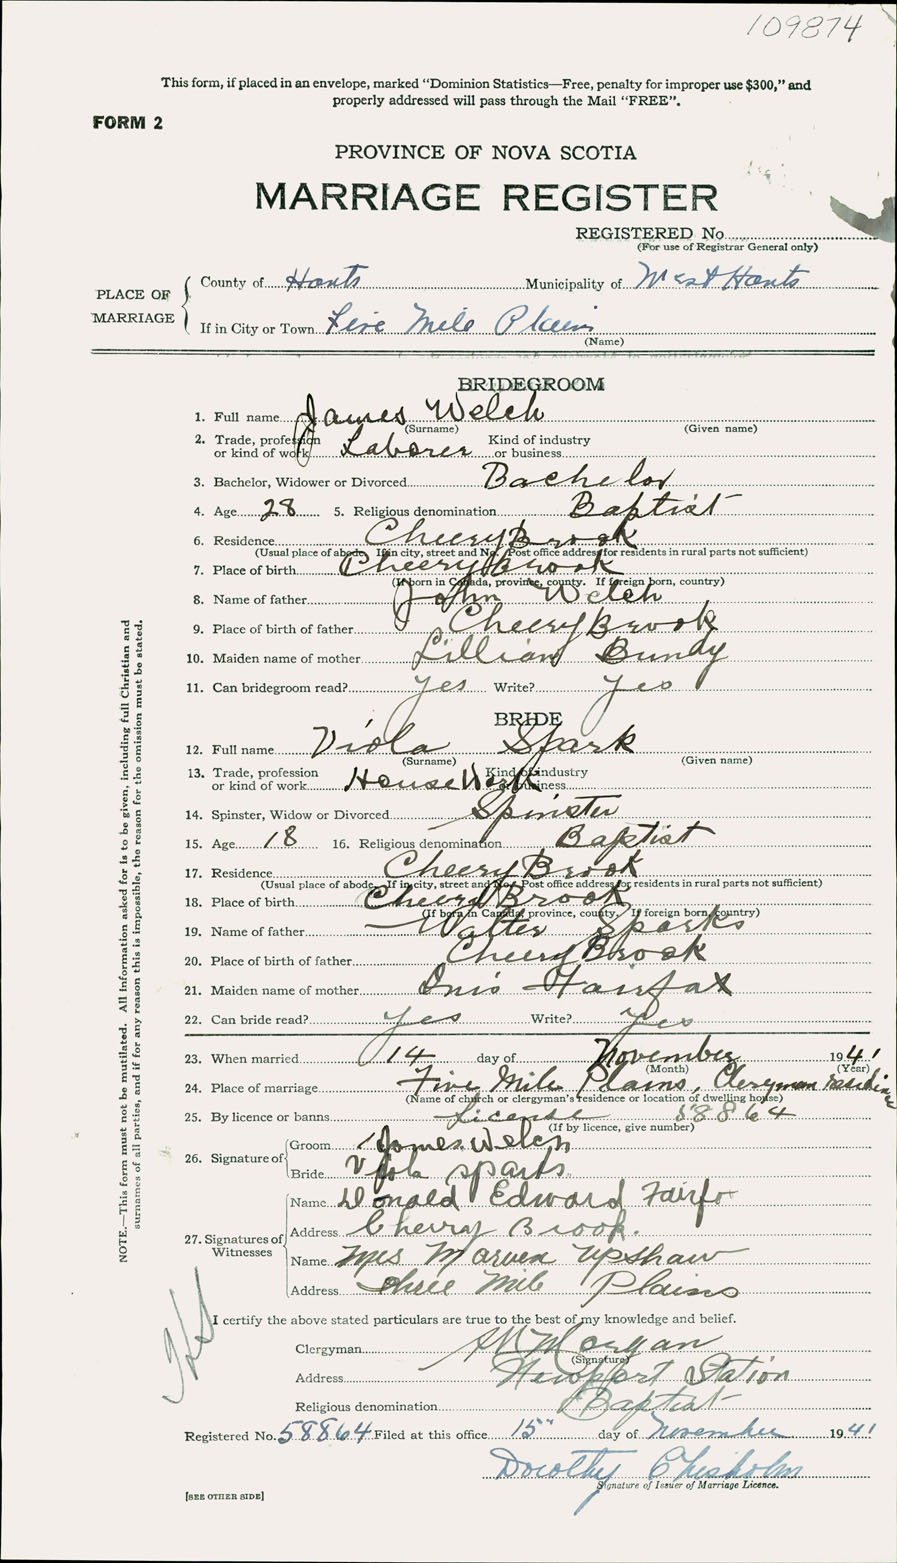 109874
This form, if placed in an envelope, marked "Dominion Statistics—Free, penalty for improper use $300," and
properly addressed will pass through the Mail "FREE".
FORM 2
PROVINCE OF NOVA SCOTIA
MARRIAGE REGISTER
REGISTERED No.
(For use of Registrar General only)
PLACE OF MARRIAGE
County of Hants Municipality of West Hants
If in City or Town Five Mile Plains
(Name)
BRIDEGROOM
1. Full name James Welch
(Surname) (Given name)
2. Trade, profession or kind of work Laborer Kind of industry or business
3. Bachelor, Widower or Divorced Bachelor
4. Age 28 5. Religious denomination Baptist
6. Residence Cherry Brook
(Usual place of abode. If in city, street and No. Post office address for residents in rural parts not sufficient)
7. Place of birth Cherry Brook
(If born in Canada, province, county. If foreign born, country)
8. Name of father John Welch
9. Place of birth of father Cherry Brook
10. Maiden name of mother Lillian Bundy
11. Can bridegroom read? yes Write? yes
BRIDE
12. Full name Viola Spark
(Surname) (Given name)
13. Trade, profession or kind of work House Work Kind of industry or business
14. Spinster, Widow or Divorced Spinster
15. Age 18 16. Religious denomination Baptist
17. Residence Cherry Brook
(Usual place of abode. If in city, street and No. Post office address for residents in rural parts not sufficient)
18. Place of birth Cherry Brook
(If born in Canada, province, county. If foreign born, country)
19. Name of father Walter Sparks
20. Place of birth of father Cherry Brook
21. Maiden name of mother Fairfax
22. Can bride read? yes Write? yes
23. When married 14 day of November 1941
(Month) (Year)
24. Place of marriage Five Mile Plains, Clergyman
(Name of church or clergyman's residence or location of dwelling house)
25. By licence or banns License 58864
(If by licence, give number)
26. Signature of
Groom James Welch
Bride Viola Sparks
27. Signatures of Witnesses
Name Donald Edward Fairfax
Address Cherry Brook.
Name Mrs Marven Upshaw
Address Three Mile Plains
I certify the above stated particulars are true to the best of my knowledge and belief.
Clergyman Morgan
(Signature)
Address Newport Station
Religious denomination Baptist
Registered No. 58864 Filed at this office 15" day of November 1941
Dorothy Chisholm
Signature of Issuer of Marriage Licence.
[SEE OTHER SIDE]
NOTE.—This form must not be mutilated. All information asked for is to be given, including full Christian and
surnames of all parties, and if for any reason this is impossible, the reason for the omission must be stated.